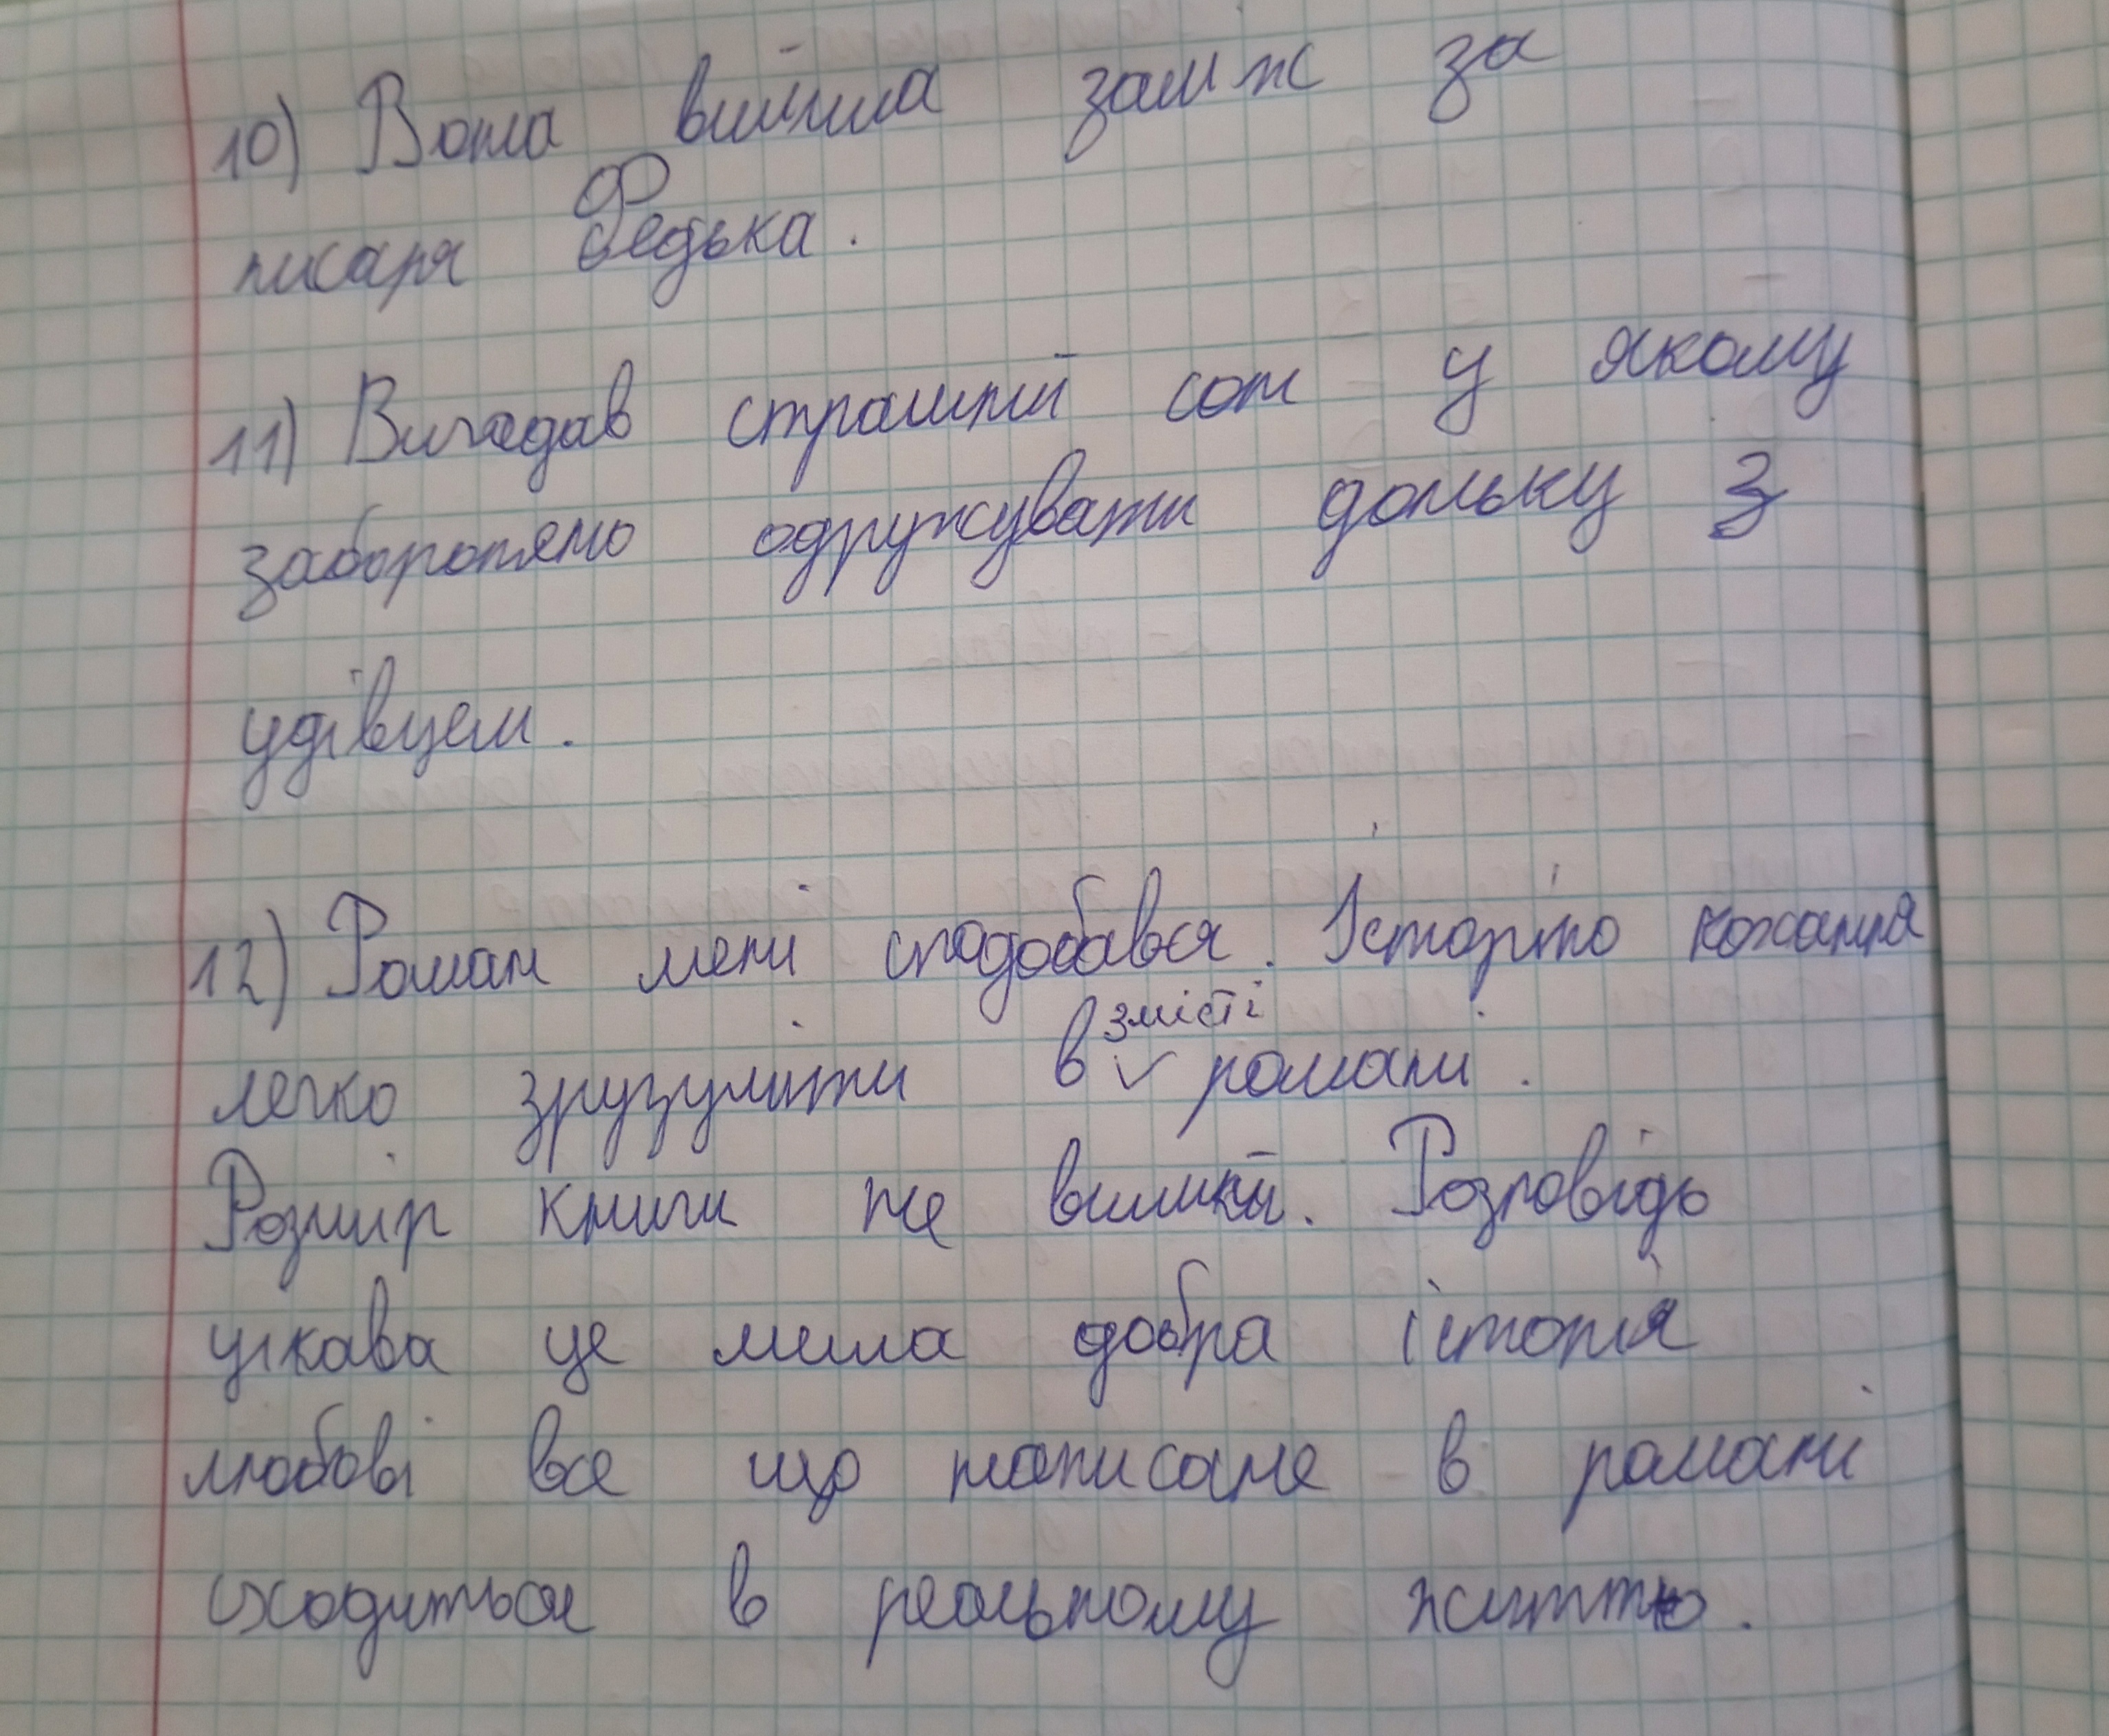 10) Вона вийшла замж за
писаря Федька.
11) Вигадав страшний сон у якому
заборонено одружувати доньку з
удівцем.
12) Роман мені сподобався. Історію кохання
легко зрузуміти в змісті романі.
Розмір книги не виликий. Розповідь
цікава це мила добра історія
любові все що написане в романі
сходиться в реальному життю.